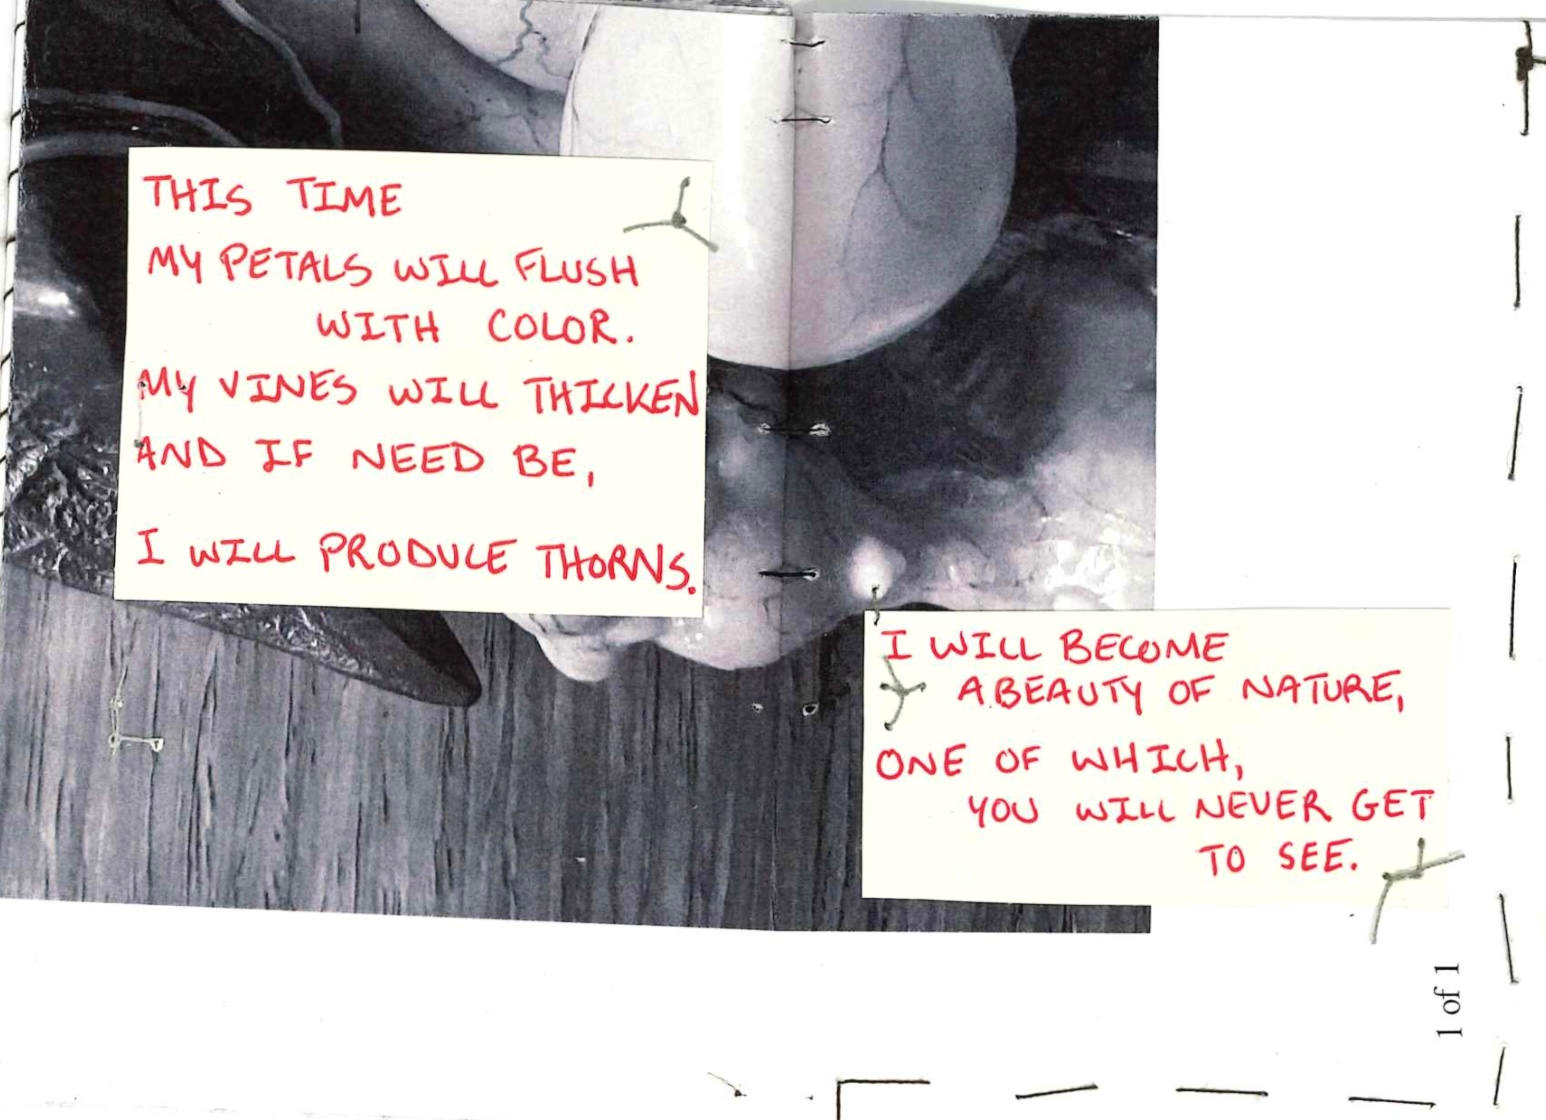 THIS TIME
MY PETALS WILL FLUSH
WITH COLOR.
MY VINES WILL THICKEN
AND IF NEED BE,
I WILL PRODUCE THORNS.
I WILL BECOME
A BEAUTY OF NATURE,
ONE OF WHICH,
YOU WILL NEVER GET
TO SEE.
1 of 1